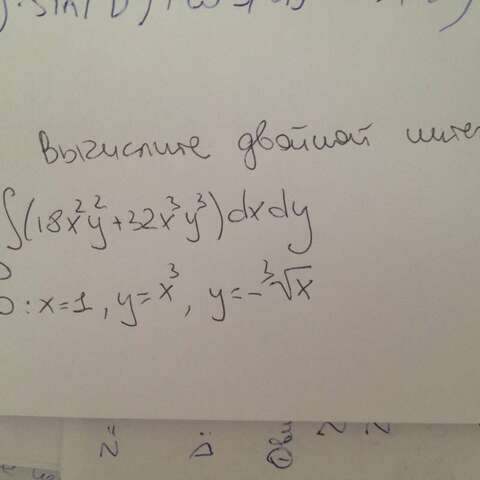 Вычислите двойной инте
∫(18x²y²+32x³y³)dxdy
D: x=1, y=x³, y=-³√x
Z=
D: